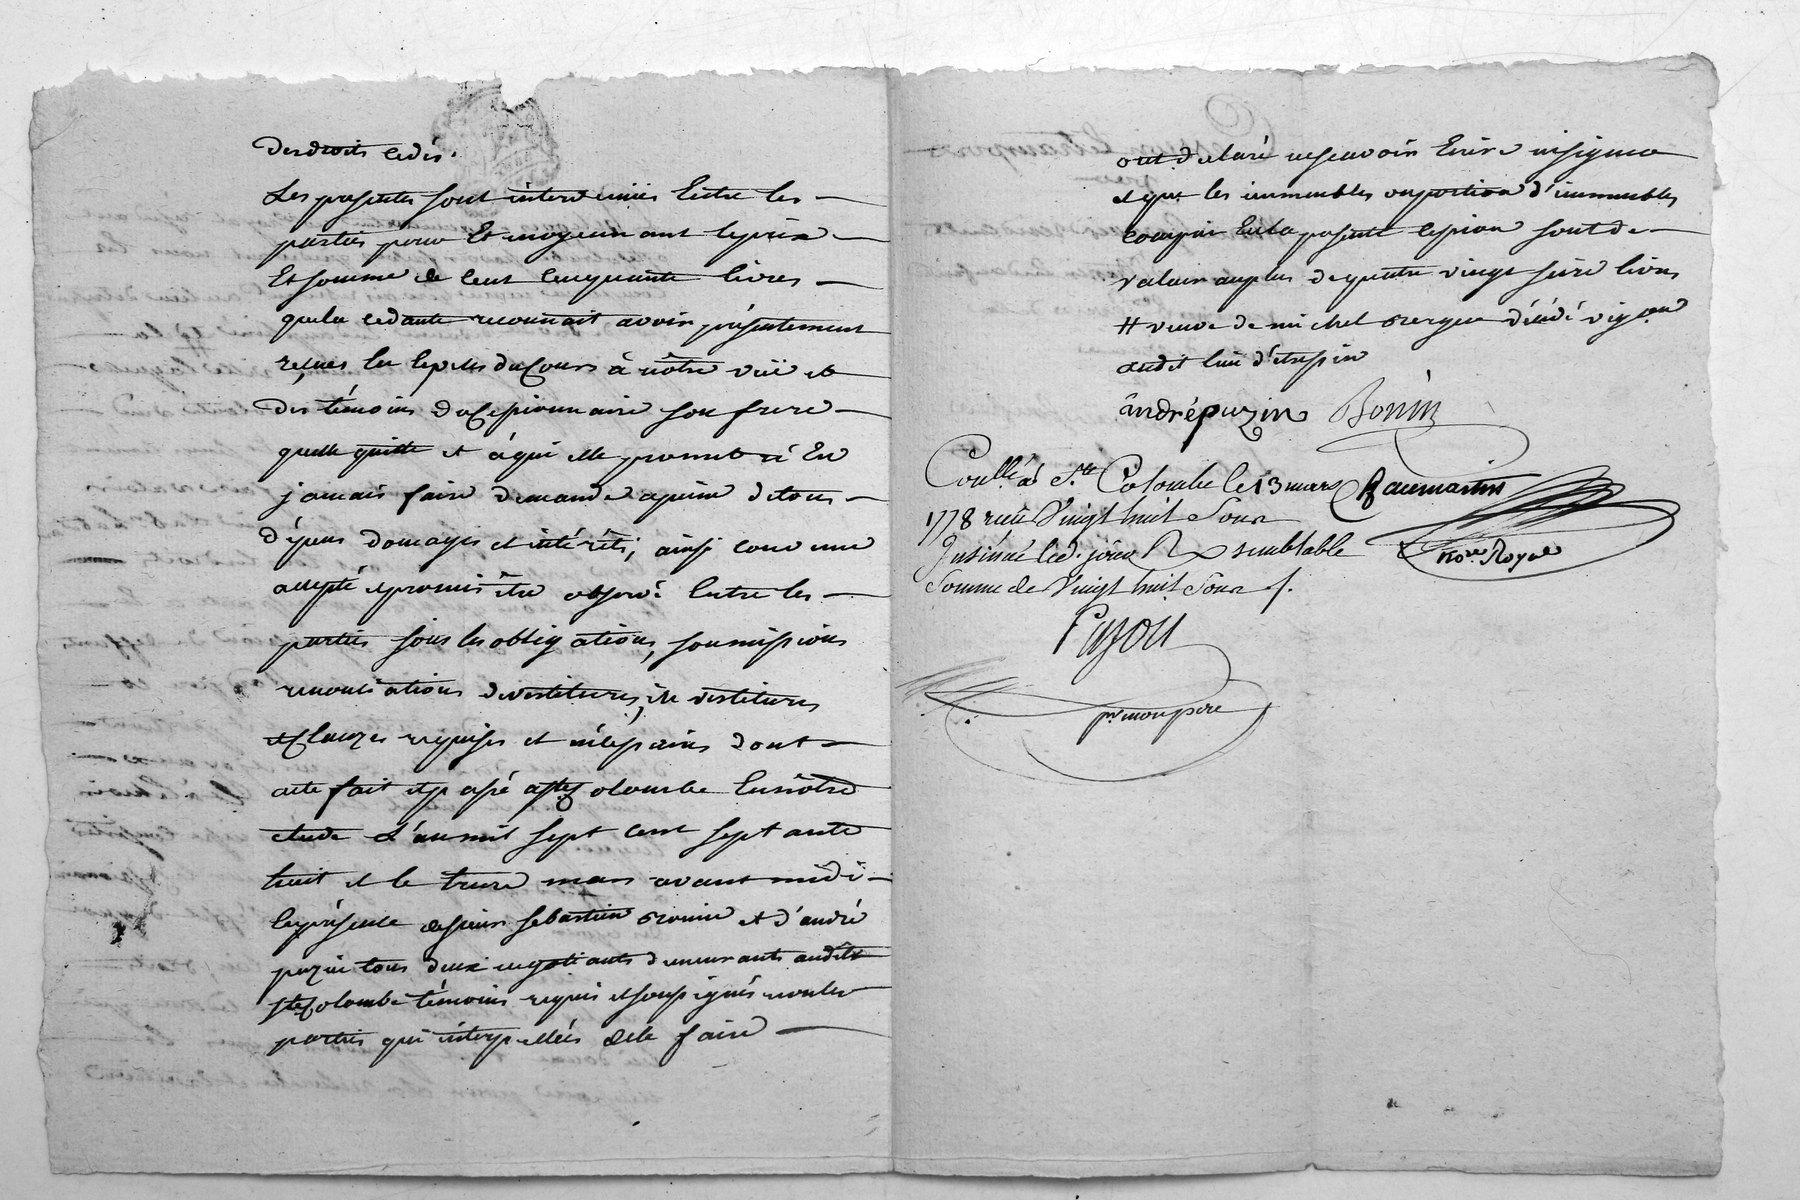 Des droits cedés.
Les presentes sont intervenües Entre les
parties pour Et moyennant le prix
Et somme de Cent Cinquante livres
que la cedante reconnait avoir présentement
reçues en especes du Cours à nôtre vüe et
des témoins du Cessionnaire son frere
quelle quitte et à qui elle promet n'En
jamais faire demande apeine de tous
dépens domages et intérêts, ainsi convenu
accepté et promis être observé Entre les
parties sous les obligations, soumissions
renonciations devestitures, investitures
et Clauzes requises et nécessaires dont
acte fait et passé a ste Colombe En nôtre
etude L'an mil sept cent septante
huit et le treize mars avant midi
En présence de sieurs sebastien Bonin et d'andré
puzin tous deux negotiants demeurants audit
ste Colombe témoins requis et soussignés non les
parties qui interpellées de le faire
ont declaré ne scavoir Ecrire ni signer
et que les immeubles ou portion d'immeubles
compris En la presente cession sont de
valeur au plus de quatre vingt seize livres
# veuve de michel decedé vigneron
audit lieu
andrépuzin Bonin
Conllé à Ste Colombe le 13 mars
1778 reçu Vingt huit Sous
Insinué led. jour R semblable
Somme de Vingt huit Sous
nore Royal
pr mon pere